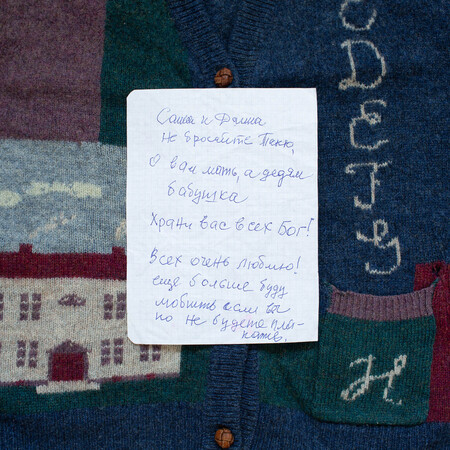 Саша и
Не бросайте
вам мать, а дедям
бабушка
Храни вас всех Бог!
Всех очень люблю!
ещё больше буду
любить если вы
не будете пла-
кать.
O
D
E
T
y
H